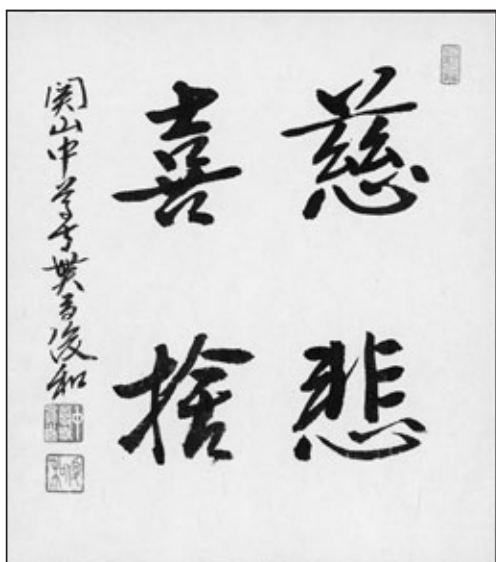 慈悲
喜捨
関山中尊寺貫首俊和